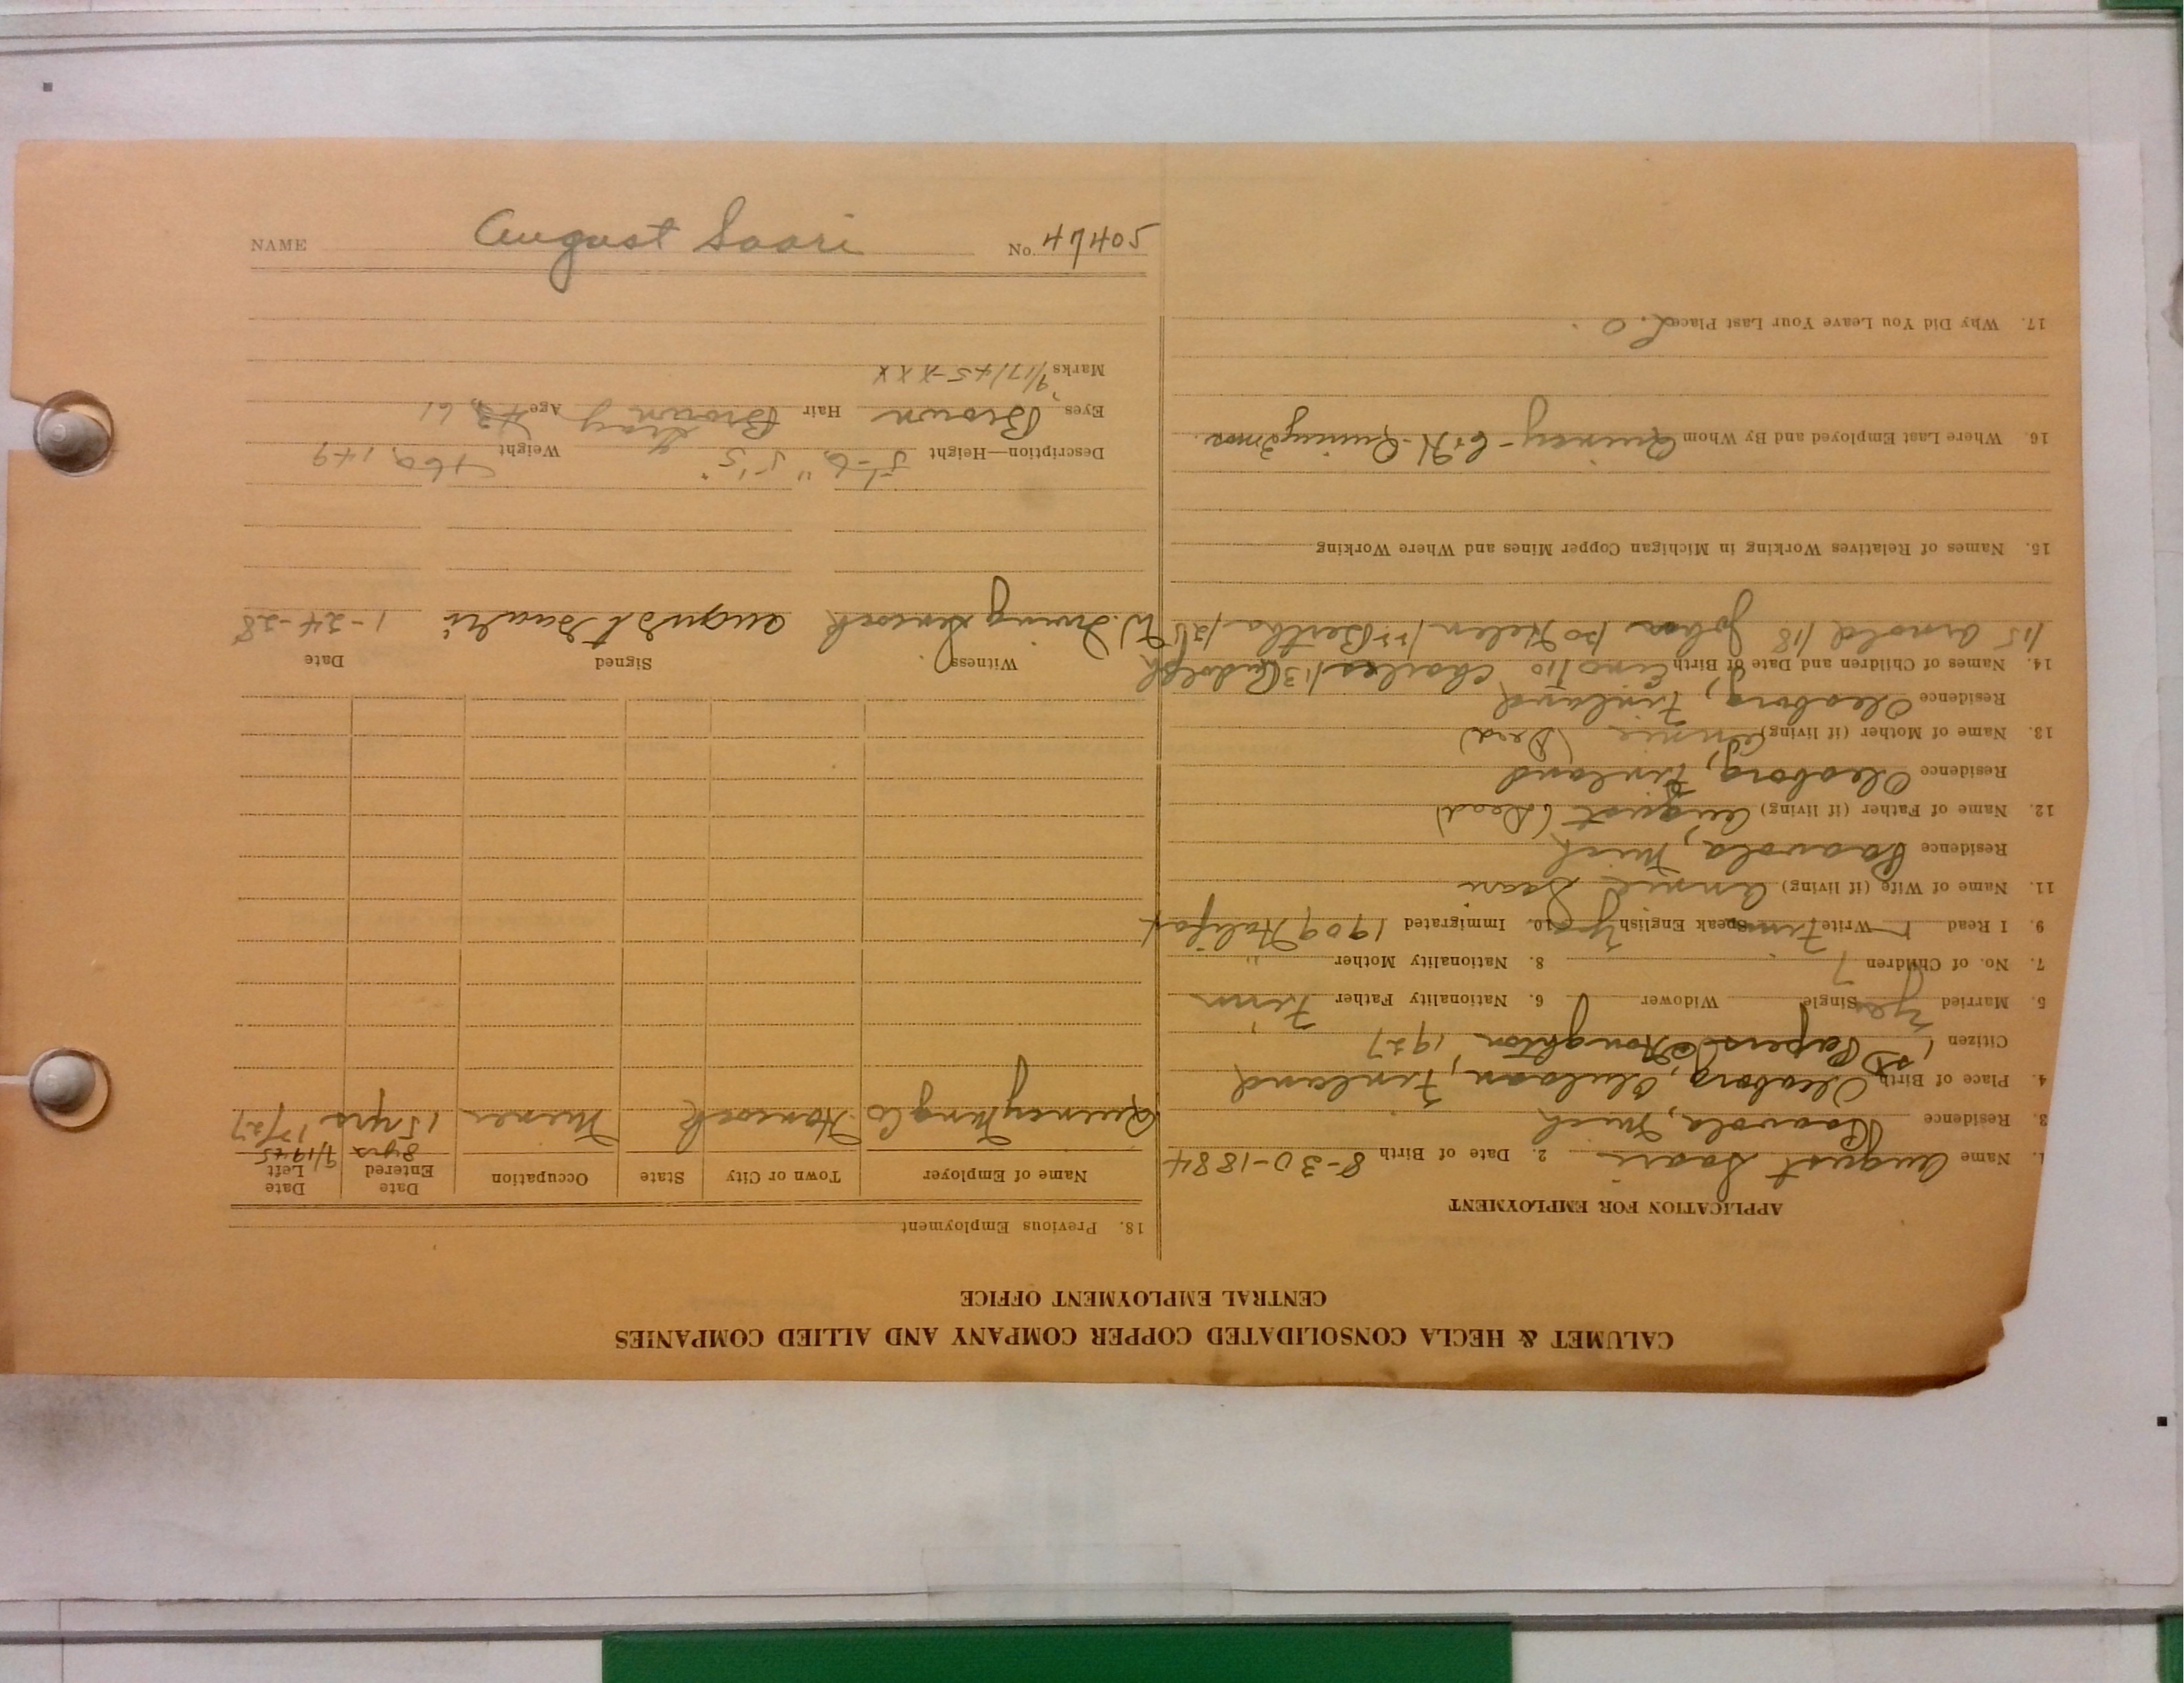 NAME August Saari No. 47405
CALUMET & HECLA CONSOLIDATED COPPER COMPANY AND ALLIED COMPANIES
CENTRAL EMPLOYMENT OFFICE
APPLICATION FOR EMPLOYMENT
1. Name August Saari 2. Date of Birth 8-30-1884
3. Residence Paavola, Mich
4. Place of Birth Uleaborg, Finland
Citizen 1st Papers Houghton, 1927
5. Married Yes Single Widower 6. Nationality Father Finn
7. No. of Children 7 8. Nationality Mother "
9. I Read Write Finn Speak English Yes 10. Immigrated 1909 Halifax
11. Name of Wife (if living) Annie Saari
Residence Paavola, Mich
12. Name of Father (if living) August (Dead)
Residence Uleaborg, Finland
13. Name of Mother (if living) Annie (Dead)
Residence Uleaborg, Finland
14. Names of Children and Date of Birth Eino/10 Charles/13 Rudolph
/15 Arnold /18 John /20 Helen /22 Bertha /26
15. Names of Relatives Working in Michigan Copper Mines and Where Working
16. Where Last Employed and By Whom Quincy - C+H - Quincy 3 mos.
17. Why Did You Leave Your Last Place L.O.
18. Previous Employment
Name of Employer Town or City State Occupation Date Entered Date Left
8 yrs 9/1945
Quincy Mng Co. Hancock Miner 15 yrs 12/27
Witness Signed Date
W. Irving August Saari 1-24-28
Description—Height 5'-6" 5'5" Weight 160, 149
Gray
Eyes Brown Hair Brown Age 43, 61
Marks 9/17/45-XXX